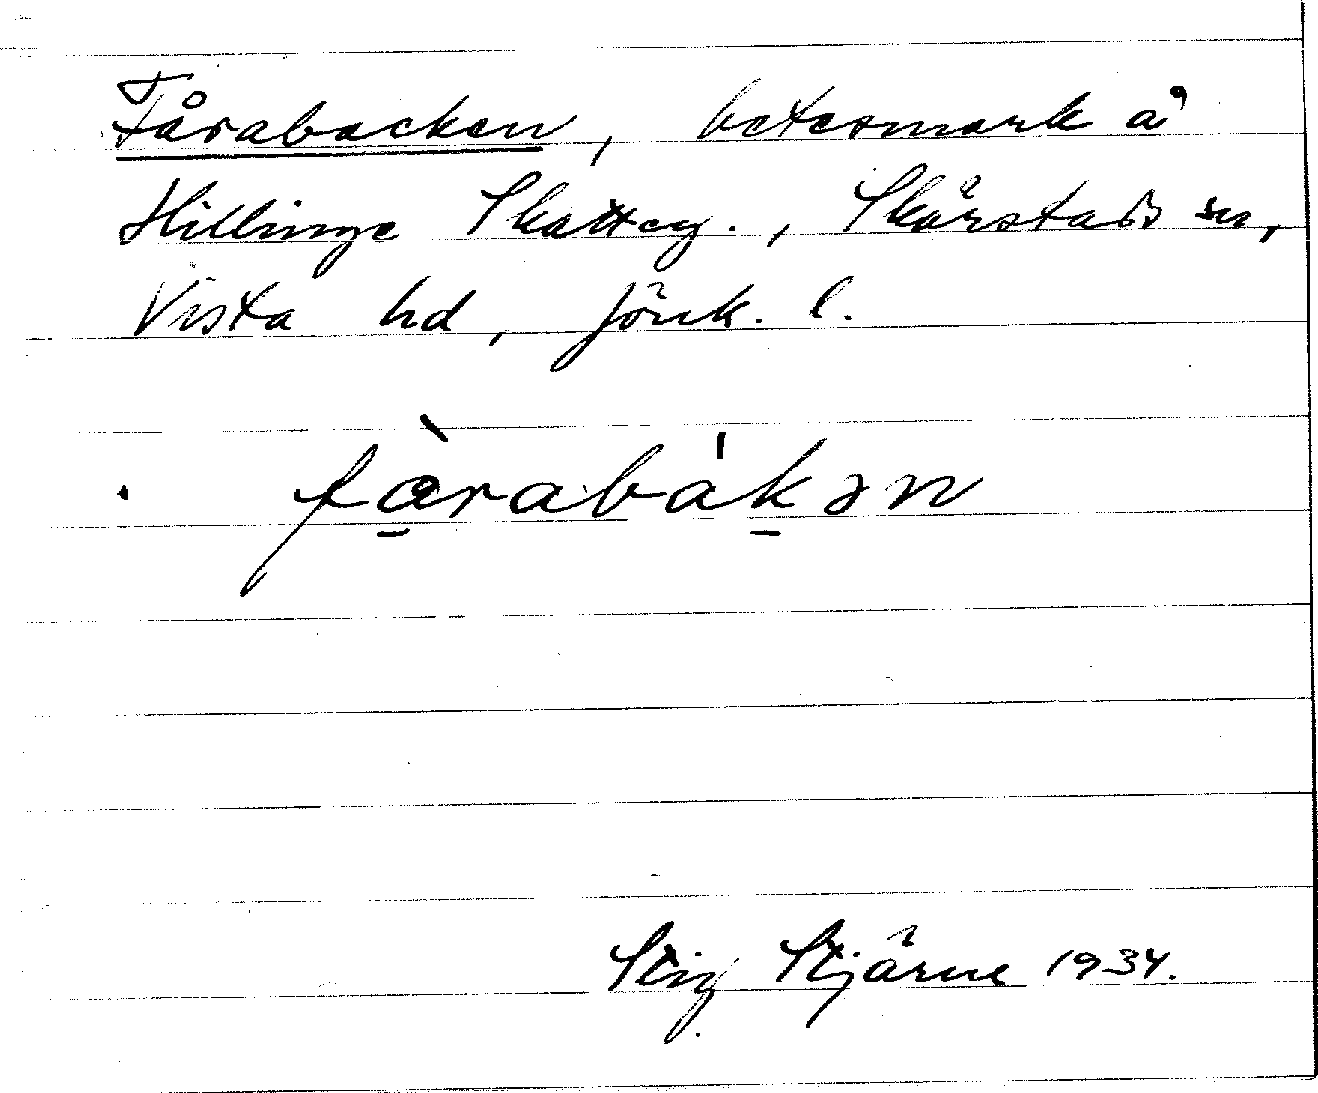 Fårabacken, betesmark å
Hillinge Skatteg., Skärstads sn,
Vista hd, Jönk. l.
fàrabákən
Stig Stjärne 1934.